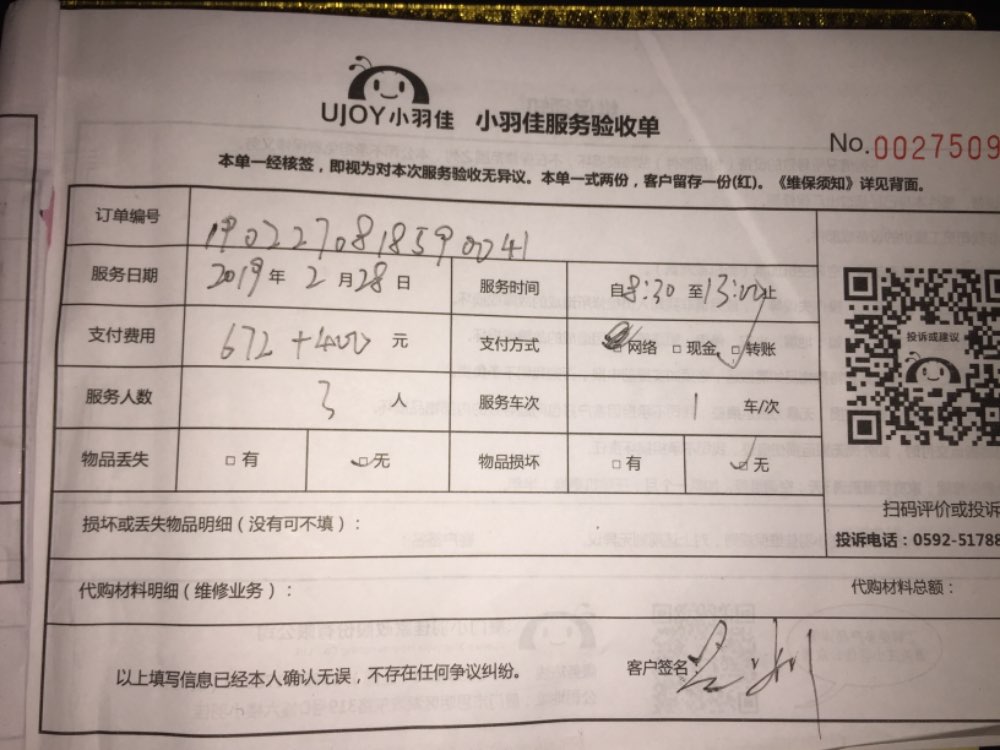 UJOY小羽佳 小羽佳服务验收单
No.0027509
本单一经核签，即视为对本次服务验收无异议。本单一式两份，客户留存一份(红)。《维保须知》详见背面。
订单编号 1902270818590041
服务日期 2019年2月28日 服务时间 自8:30至13:00止
支付费用 672+400元 支付方式 □网络 □现金 □转账
服务人数 3人 服务车次 1 车/次
物品丢失 □有 □无 物品损坏 □有 □无
投诉或建议
扫码评价或投诉
损坏或丢失物品明细（没有可不填）：
投诉电话：0592-51788
代购材料明细（维修业务）： 代购材料总额：
以上填写信息已经本人确认无误，不存在任何争议纠纷。 客户签名